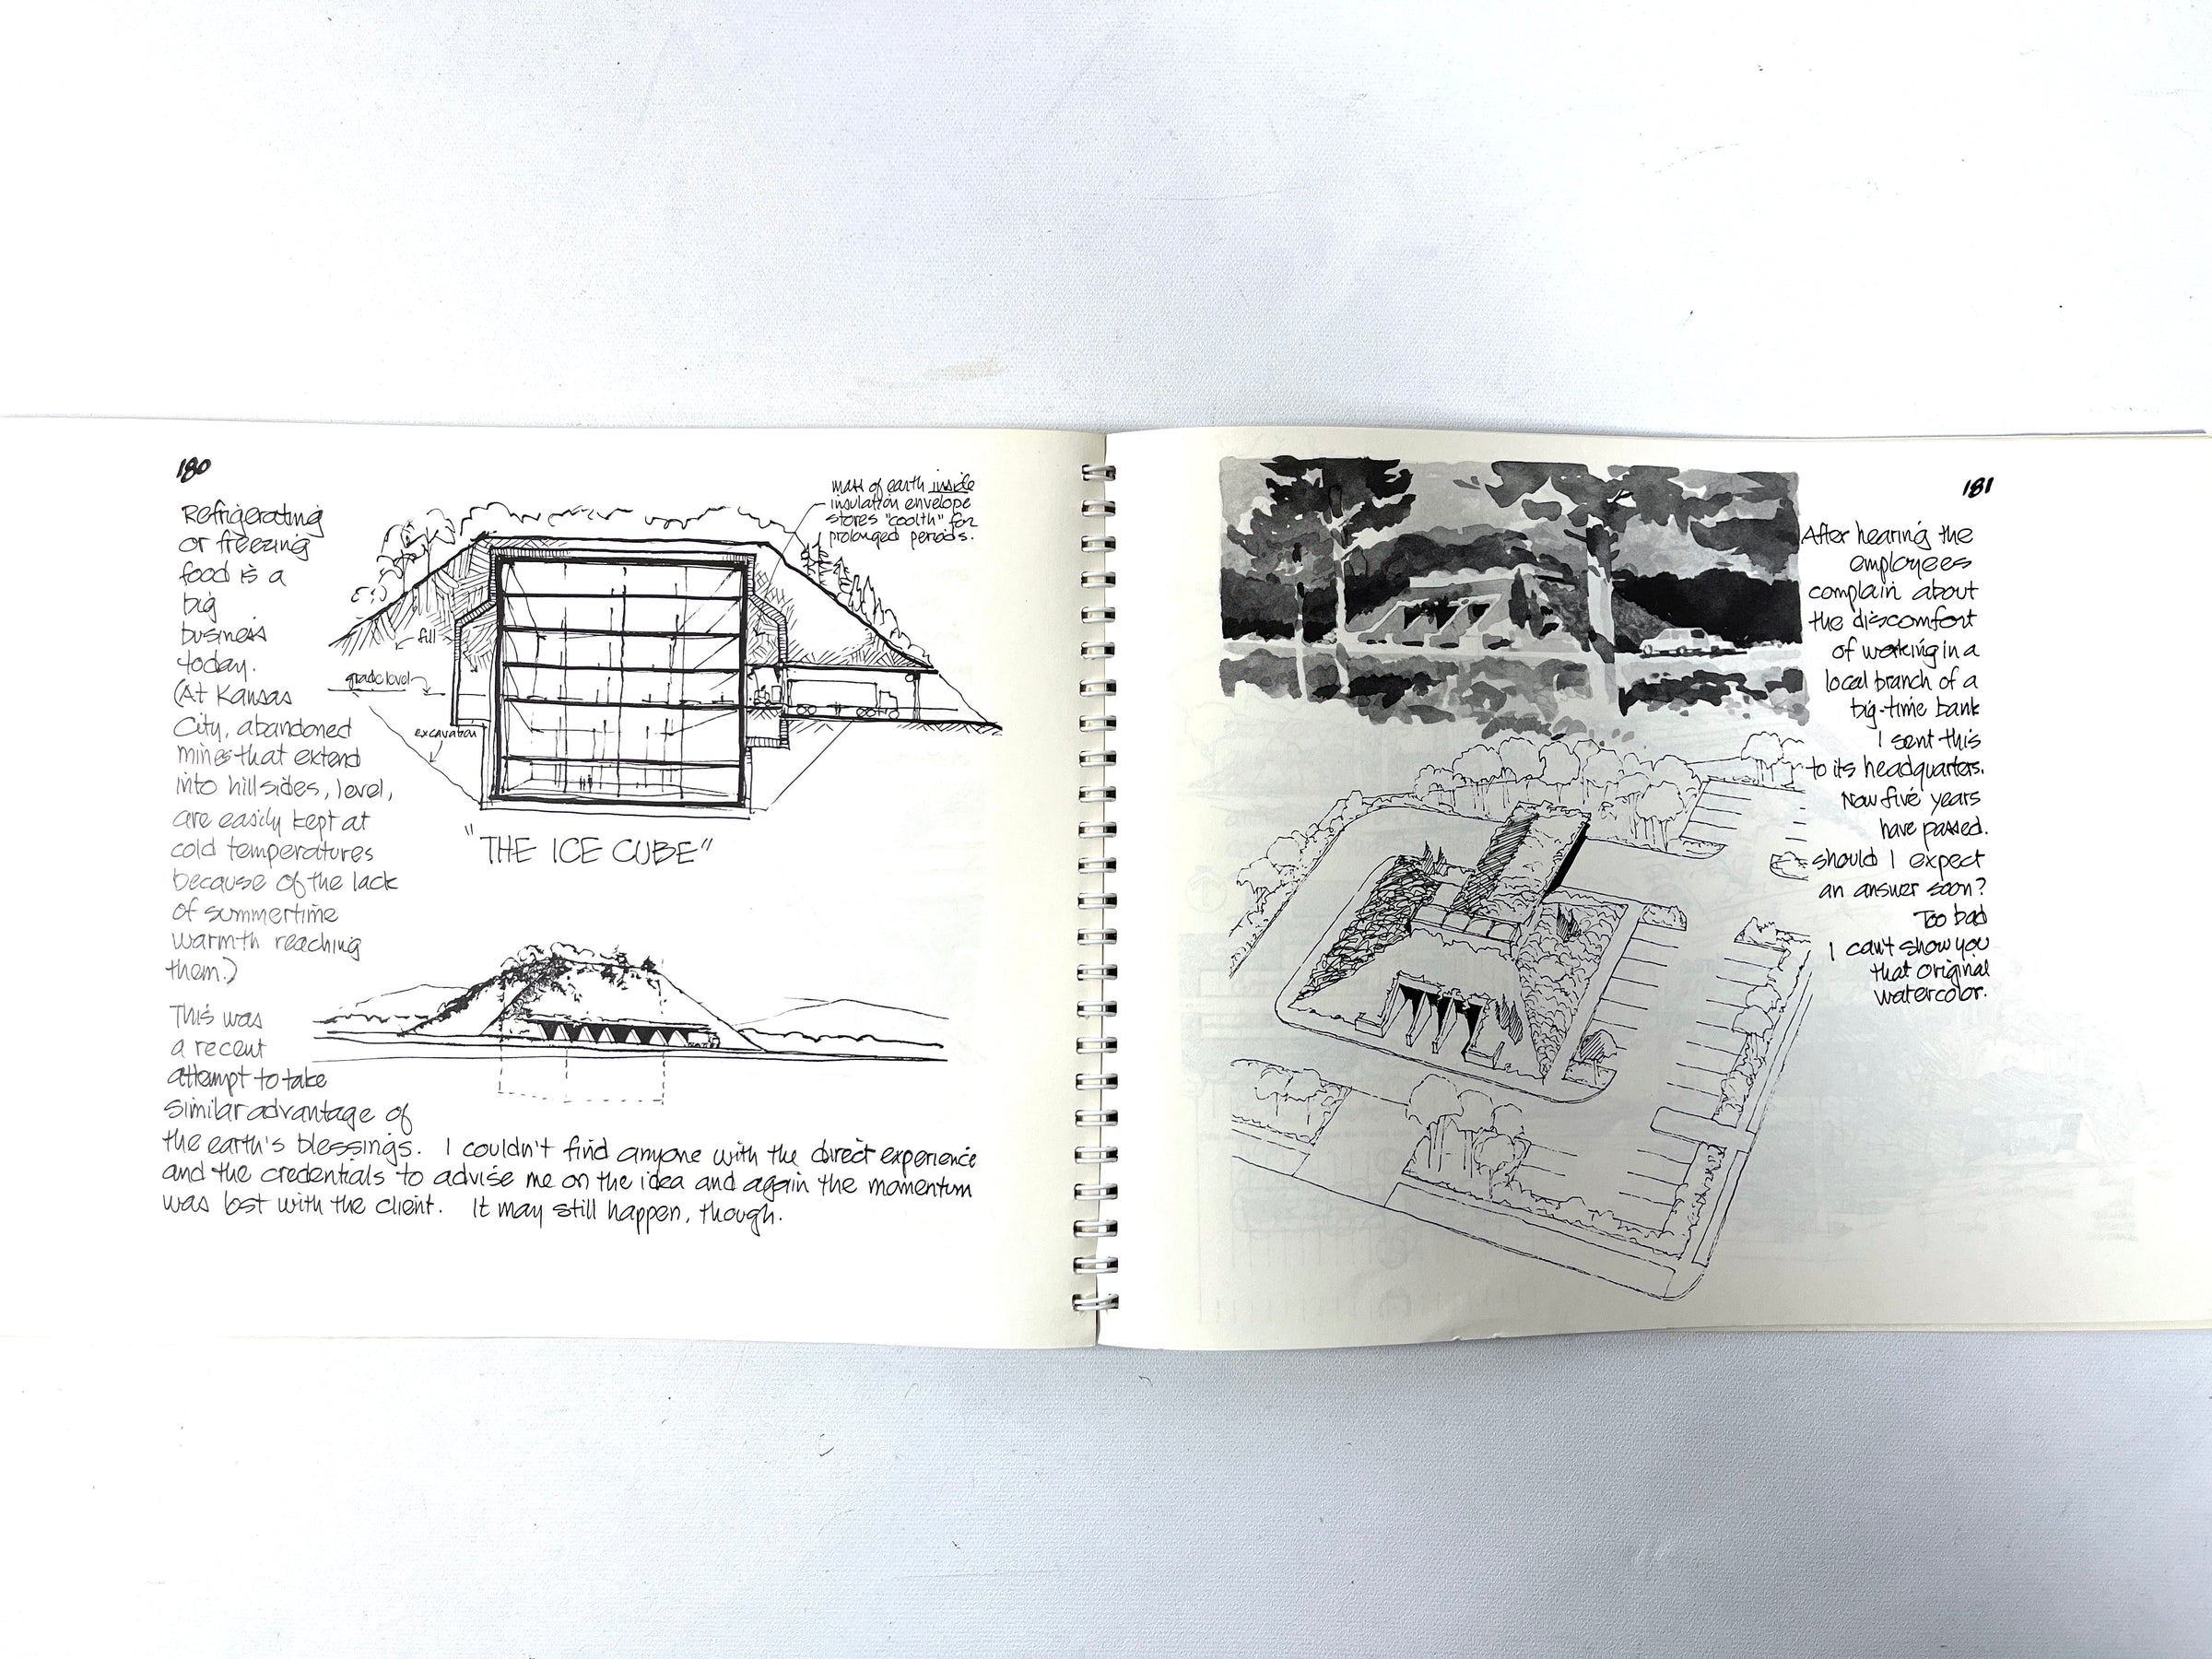 180
Refrigerating
or freezing
food is a
big
business
today.
(At Kansas
City, abandoned
mines that extend
into hillsides, level,
are easily kept at
cold temperatures
because of the lack
of summertime
warmth reaching
them.)
mass of earth inside
insulation envelope
stores "coolth" for
prolonged periods.
fill
grade level
excavation
"THE ICE CUBE"
This was
a recent
attempt to take
similar advantage of
the earth's blessings. I couldn't find anyone with the direct experience
and the credentials to advise me on the idea and again the momentum
was lost with the client. It may still happen, though.
181
After hearing the
employees
complain about
the discomfort
of working in a
local branch of a
big-time bank
I sent this
to its headquarters.
Now five years
have passed.
Should I expect
an answer soon?
Too bad
I can't show you
that original
watercolor.